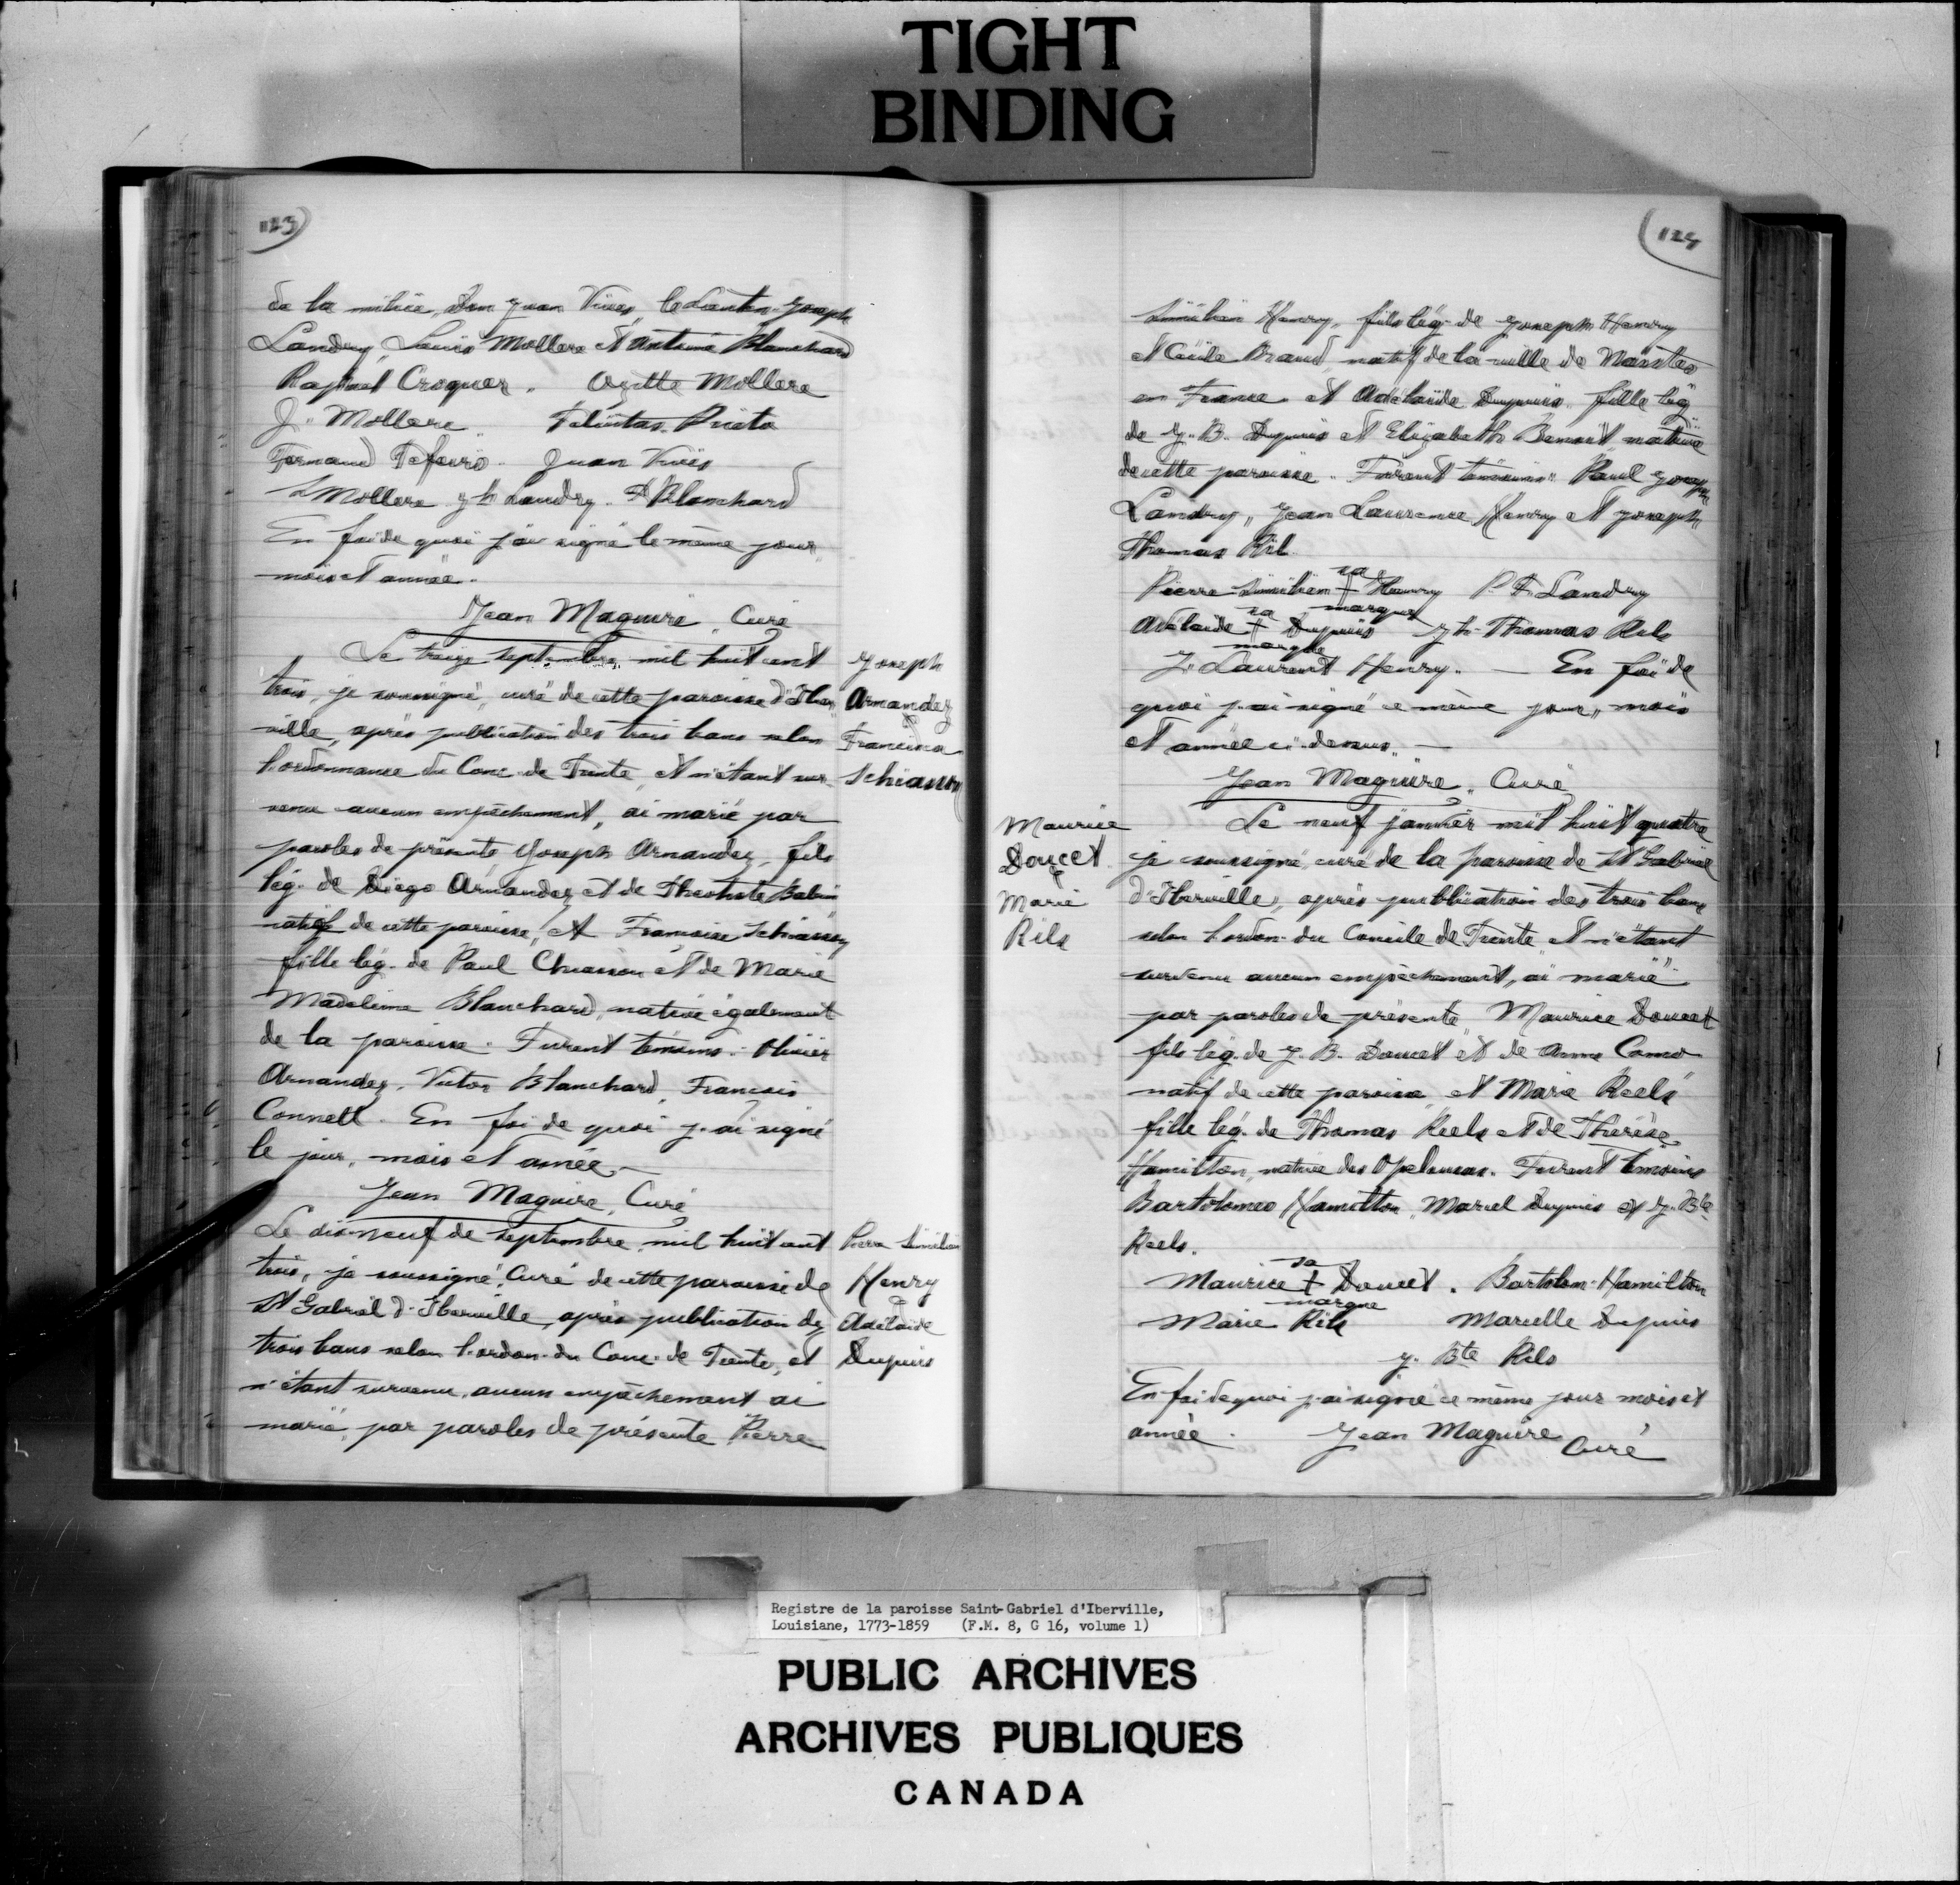 TIGHT
BINDING
123
de la milice, Don Juan Vives, le Lieuten. Joseph
Landry, Louis Mollere et Antoine Blanchard
Raphael Croquer. Ozitte Mollere
J. Mollere. Felicitas Prieto
Juan Vives
L Mollere Jh Landry. A Blanchard
En foi de quoi j'ai signé le même jour
mois et année.
Jean Maguire, Curé
Le treize septembre, mil huit cent
trois, je soussigné, curé de cette paroisse d'Iber
ville, après publication des trois bans selon
l'ordonnance du Conc. de Trente, et n'étant sur
venu aucun empêchement, ai marié par
paroles de présente Joseph Arnandez, fils
lég. de Diego Arnandez et de Theotiste Babin
natif de cette paroisse, et Francoise Schiasson
fille lég. de Paul Chiasson et de Marie
Madeleine Blanchard, native également
de la paroisse. Furent témoins: Olivier
Arnandez, Victor Blanchard, Francois
Connell. En foi de quoi j'ai signé
le jour, mois et année.
Jean Maguire, Curé
Le dix-neuf de septembre, mil huit cent
trois, je soussigné, Curé de cette paroisse de
St Gabriel d'Iberville, après publication des
trois bans selon l'ordon. du Conc. de Trente, et
n'étant survenu aucun empêchement ai
marié, par paroles de présente Pierre
Joseph
Arnandez
&
Schiasson
Pierre Similien
Henry
&
Adélaide
Dupuis
124
Similien Henry, fils lég. de Joseph Henry
et Cécile Braud, natif de la ville de Nantes
en France et Adélaïde Dupuis, fille lég
de J. B. Dupuis et Elizabeth Benoit, native
de cette paroisse. Furent témoins: Paul Joseph
Landry, Jean Laurence Henry et Joseph
Thomas Ril.
sa
Pierre Similien + Henry P. F. Landry
marque
sa
Adélaide + Dupuis Jh. Thomas Rils
marque
J. Laurent Henry. — En foi de
quoi j'ai signé ce même jour, mois
et année ci-dessus. —
Jean Maguire, Curé
Maurice
Doucet
&
Marie
Rils
Le neuf janvier mil huit quatre
je soussigné curé de la paroisse de St Gabriel
d'Iberville, après publication des trois bans
selon l'ordon. du Concile de Trente et n'étant
survenu aucun empêchement, ai marié
par paroles de présente Maurice Doucet
fils lég. de J. B. Doucet et de Anne Como
natif de cette paroisse, et Marie Reels
fille lég. de Thomas Reels et de Thérèse
Hamilton, native des Opelousas. Furent témoins
Bartolomeo Hamilton, Marcel Dupuis et J. Bte
Reels.
sa
Maurice + Doucet. Bartolom. Hamilton
marque
Marie Rils Marcelle Dupuis
J. Bte Rils
En foi de quoi j'ai signé ce même jour mois et
année. Jean Maguire
Curé
Registre de la paroisse Saint-Gabriel d'Iberville,
Louisiane, 1773-1859 (F.M. 8, G 16, volume 1)
PUBLIC ARCHIVES
ARCHIVES PUBLIQUES
CANADA